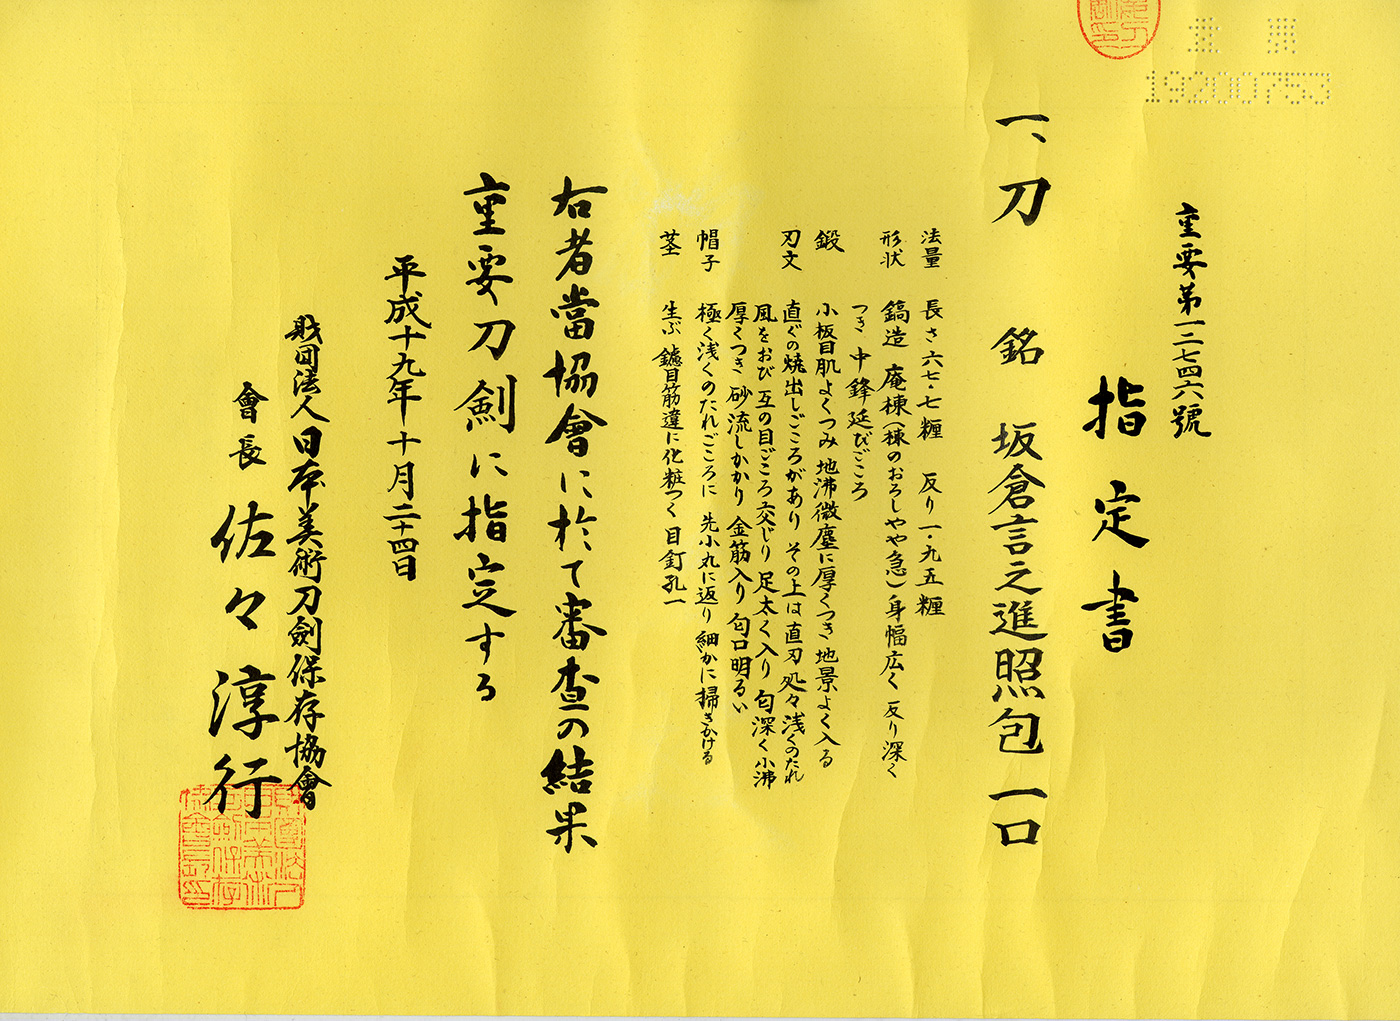 重要
19200753
重要第一二七四六號
指定書
一、刀 銘 坂倉言之進照包 一口
法量 長さ六七・七糎 反り一・九五糎
形状 鎬造 庵棟(棟のおろしやや急)身幅広く 反り深く
つき 中鋒延びごころ
鍛 小板目肌よくつみ 地沸微塵に厚くつき 地景よく入る
刃文 直ぐの焼出しごころがあり その上は直刃 処々浅くのたれ
風をおび 互の目ごころ交じり 足太く入り 匂深く 小沸
厚くつき 砂流しかかり 金筋入り 匂口明るい
帽子 極く浅くのたれごころに 先小丸に返り 細かに掃きかける
茎 生ぶ 鑢目筋違に化粧つく 目釘孔一
右者當協會に於て審査の結果
重要刀剣に指定する
平成十九年十月二十四日
財団法人日本美術刀劍保存協會
會長 佐々淳行